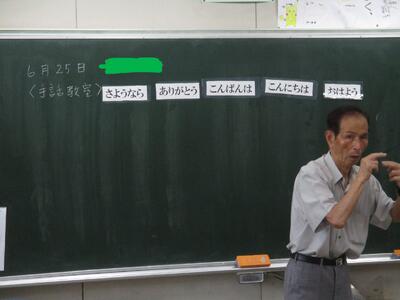 6月25日
〈手話教室〉 さようなら ありがとう こんばんは こんにちは おはよう